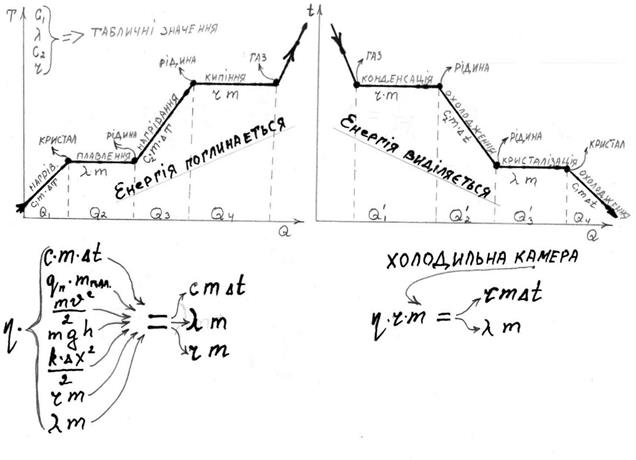 T
C₁
λ
C₂
r
=> ТАБЛИЧНІ ЗНАЧЕННЯ
РІДИНА
КИПІННЯ
ГАЗ
r m
НАГРІВАННЯ
C₂m·ΔT
КРИСТАЛ
ПЛАВЛЕННЯ
РІДИНА
λ m
НАГРІВ
C₁m·ΔT
ЕНЕРГІЯ ПОГЛИНАЄТЬСЯ
Q₁ Q₂ Q₃ Q₄
Q
t
ГАЗ
КОНДЕНСАЦІЯ
РІДИНА
r·m
ОХОЛОДЖЕННЯ
C₂m·Δt
РІДИНА
КРИСТАЛІЗАЦІЯ
КРИСТАЛ
λ m
ОХОЛОДЖЕННЯ
C₁mΔt
ЕНЕРГІЯ ВИДІЛЯЄТЬСЯ
Q₁' Q₂' Q₃' Q₄
Q
η·
c·m·Δt
qₙ·mпал.
mv²/2
mgh
k·Δx²/2
r m
λ m
=
c m Δt
λ m
r m
ХОЛОДИЛЬНА КАМЕРА
η·r·m =
r m Δt
λ m